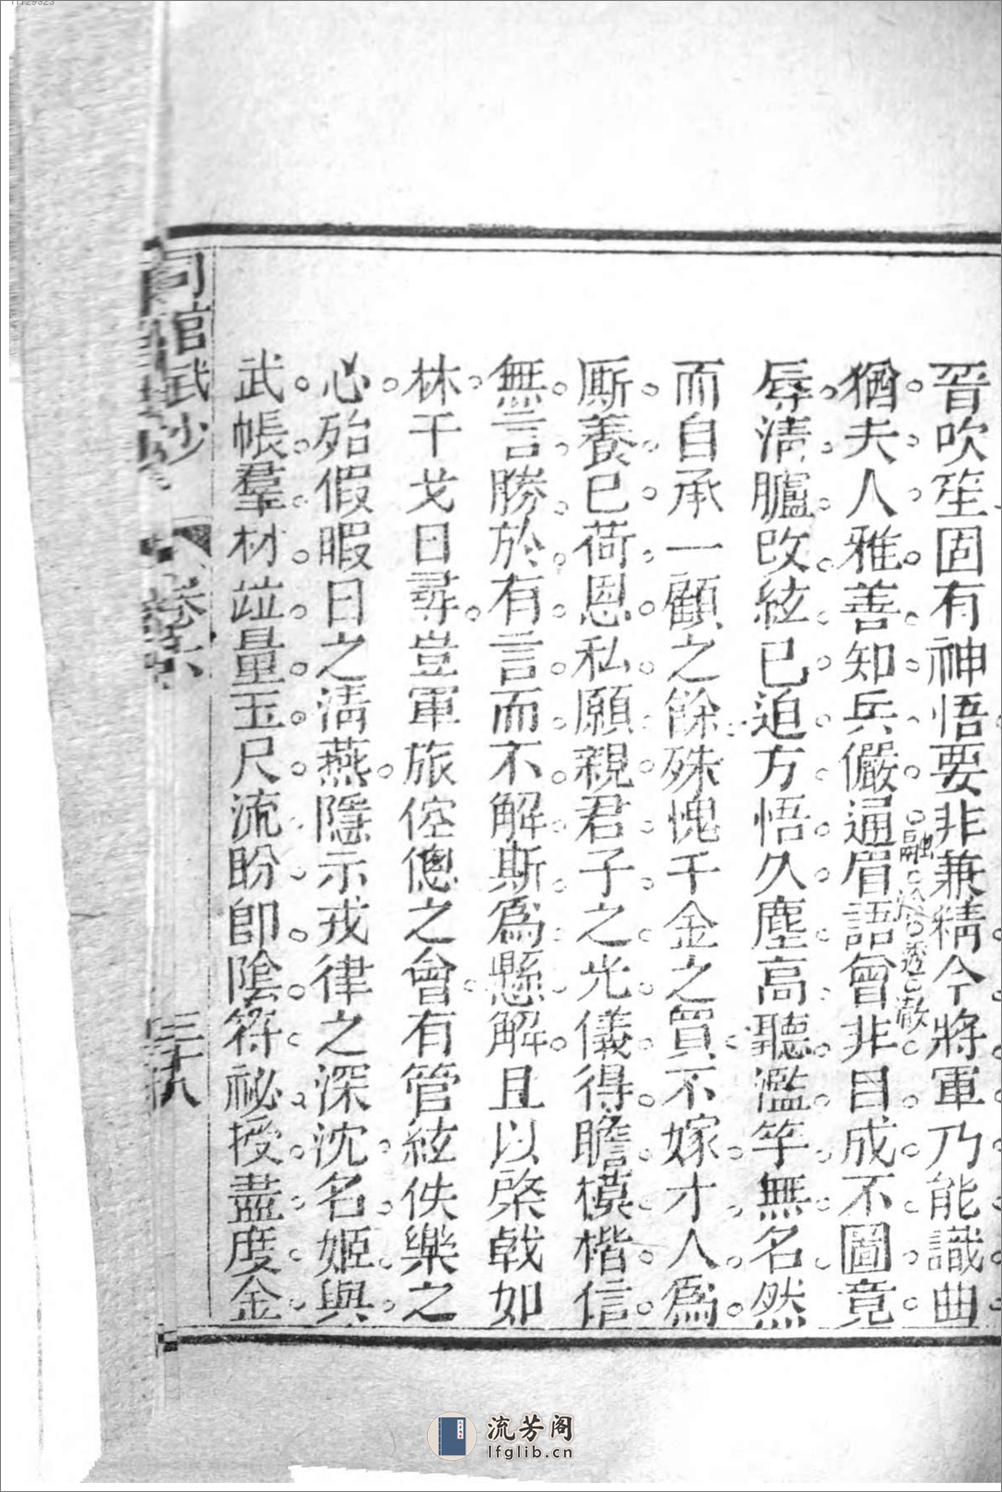 晉吹笙固有神悟要非兼精今將軍乃能識曲
猶夫人雅善知兵儼通眉語曾非目成不圖竟
融透澈
辱淸臚改絃已迫方悟久塵高聽濫竽無名然
而自承一顧之餘殊愧千金之買不嫁才人爲
厮養已荷恩私願親君子之光儀得瞻模楷信
無言勝於有言而不解斯爲懸解且以棨戟如
林干戈日尋豈軍旅倥傯之會有管絃佚樂之
心殆假暇日之淸燕隱示戎律之深沈名姬與
武帳羣材竝量玉尺流盼卽陰符祕授盡度金
司官武少
卷六
三十八
流芳阁
lfglib.cn